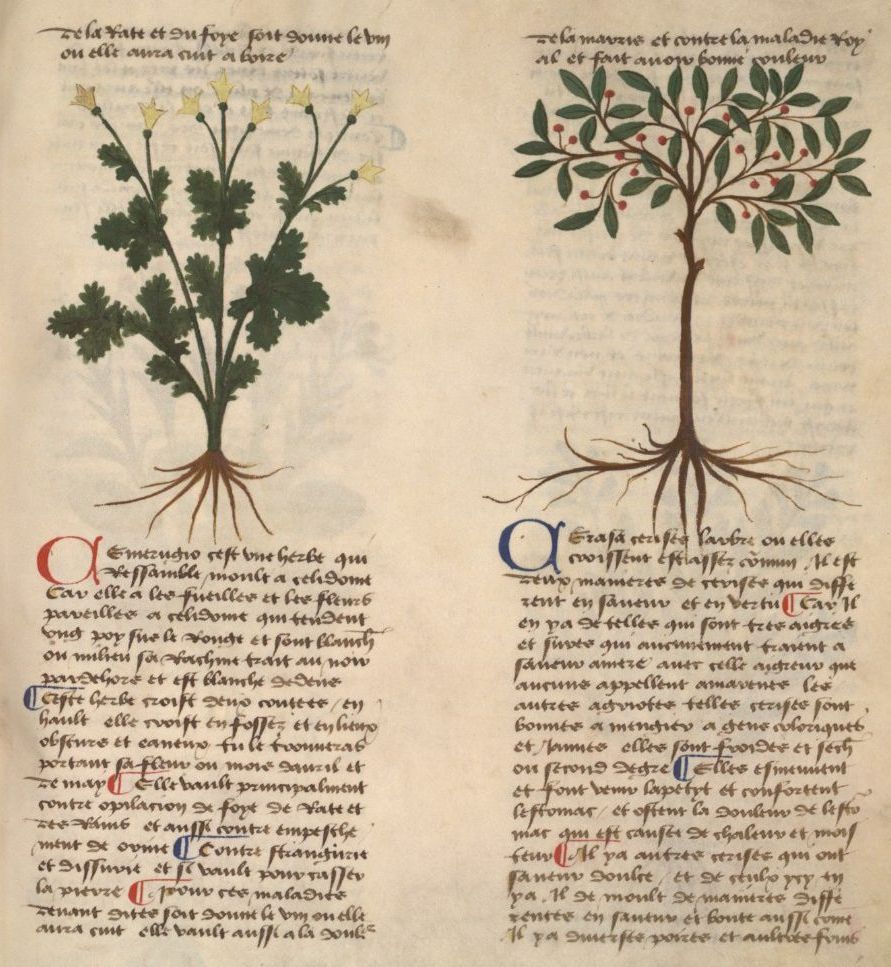 De la Rate et du foye soit donne le vin
ou elle aura cuit a boire
Emerugio cest une herbe qui
Ressamble moult a celidoine
Car elle a les fueilles et les fleurs
pareilles a celidoine qui tendent
ung poy sur le Rouge et sont blanch
ou milieu sa Rachine trait au noir
par dehors et est blanche dedens
Ceste herbe croist deux coutees en
hault elle croist en fossez et en lieux
obscurs et eaueux tu le trouveras
portant sa fleur ou mois davril et
de may Elle vault principalment
contre opilacion de foye de Rate et
des Rains et aussi contre empesche
ment de orine Contre strangurie
et dissurie et si vault pour casser
la pierre pour ces maladies
devant dites soit donne le vin ou elle
aura cuit elle vault aussi a la doule
de la mauris et contre la maladie Roy
al et fait avoir bonne couleur
Cerasa cerises larbre ou elles
croissent est assez comun Il est
deux manieres de cerises qui diffe
rent en saveur et en vertu Car Il
en ya de telles qui sont tres aigres
et sures qui aucunement traient a
saveur amere avec celle aigreur que
aucuns appellent amarenes les
autres agriotes telles cerises sont
bonnes a mengier a gens coleriques
et Jaunes elles sont froides et sech
ou second degre Elles esmeuvent
et font venir lapetyt et confortent
lestomac et ostent la douleur de lesto
mac qui est causee de chaleur et mois
teur Il ya autres cerises qui ont
saveur doulce et de ceulx ycy en
ya Il de moult de manieres diffe
rentes en saveur et bonte aussi come
Il ya diverses poires et aultres fruis